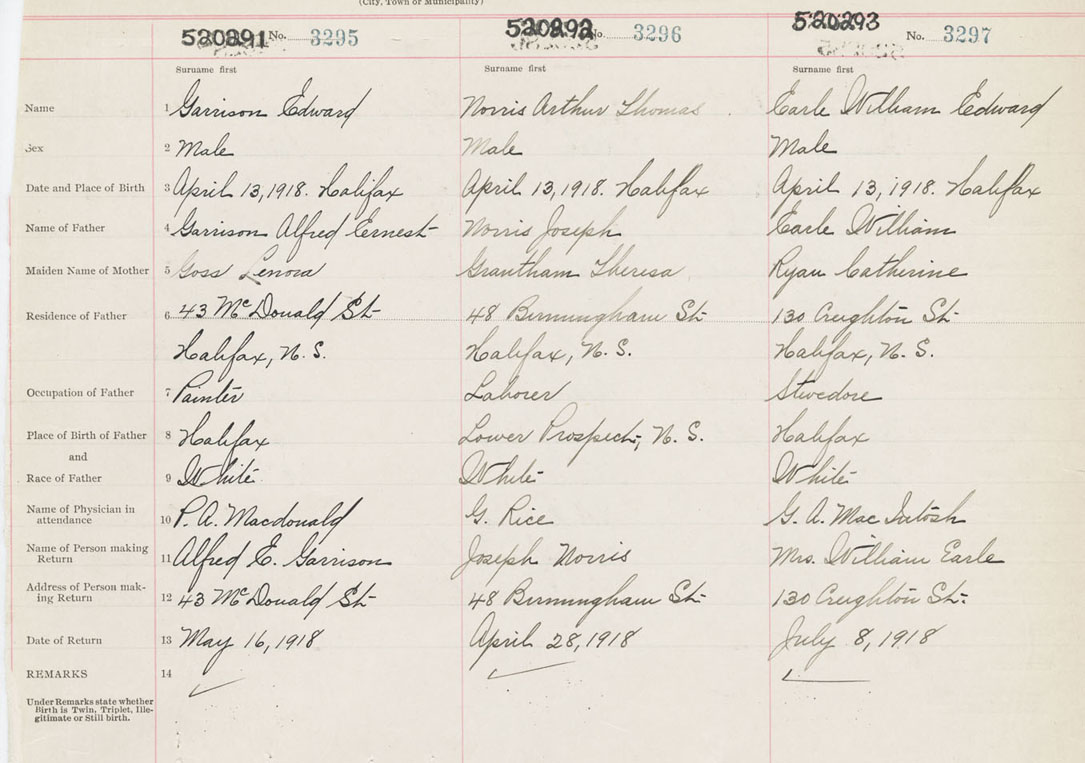 (City, Town or Municipality)
520291 No. 3295 520292 No. 3296 520293 No. 3297
Surname first Surname first Surname first
Name 1 Garrison Edward Norris Arthur Thomas Earle William Edward
Sex 2 Male Male Male
Date and Place of Birth 3 April 13, 1918. Halifax April 13, 1918. Halifax April 13, 1918. Halifax
Name of Father 4 Garrison Alfred Ernest Norris Joseph Earle William
Maiden Name of Mother 5 Goss Lenora Grantham Theresa Ryan Catherine
Residence of Father 6 43 McDonald St- 48 Birmingham St- 130 Creighton St-
Halifax, N. S. Halifax, N. S. Halifax, N. S.
Occupation of Father 7 Painter Laborer Stevedore
Place of Birth of Father 8 Halifax Lower Prospect, N. S. Halifax
and
Race of Father 9 White White White
Name of Physician in attendance 10 P. A. Macdonald G. Rice G. A. Mac Intosh
Name of Person making Return 11 Alfred E. Garrison Joseph Norris Mrs. William Earle
Address of Person making Return 12 43 McDonald St- 48 Birmingham St- 130 Creighton St-
Date of Return 13 May 16, 1918 April 28, 1918 July 8, 1918
REMARKS 14
Under Remarks state whether
Birth is Twin, Triplet, Ille-
gitimate or Still birth.